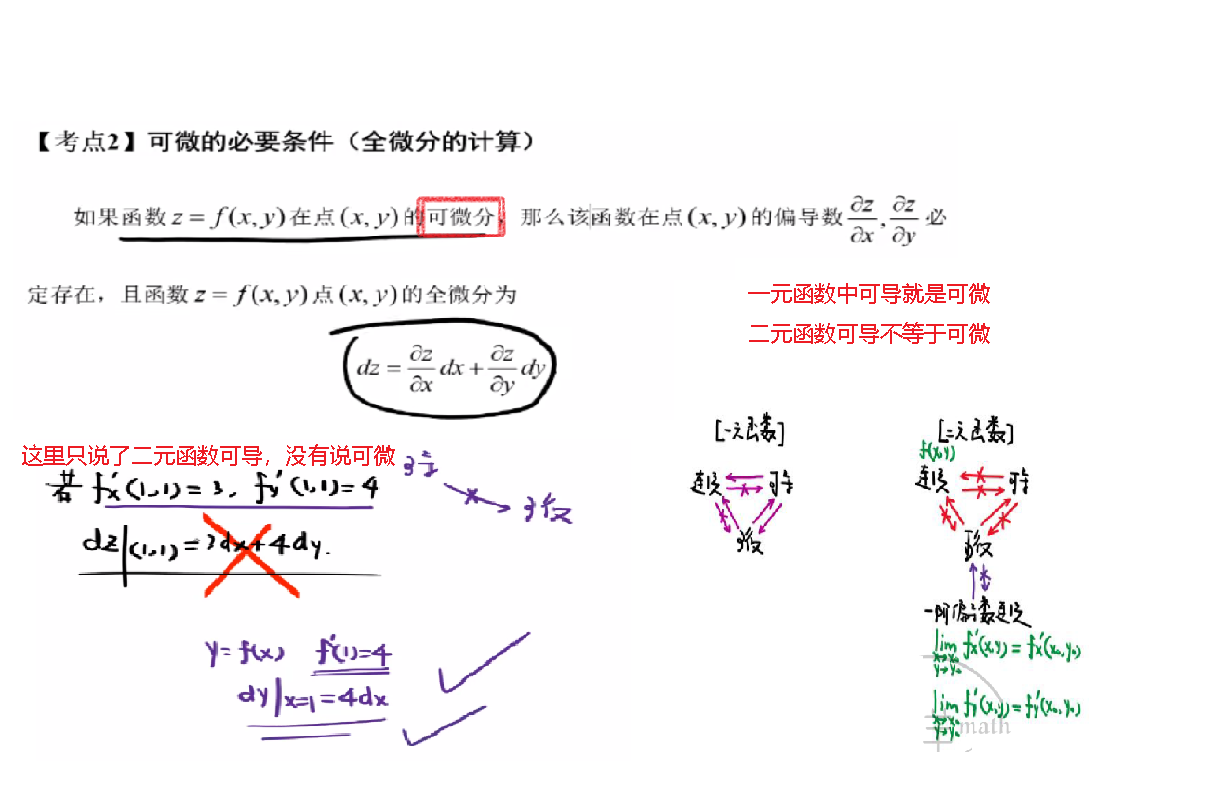 【考点2】可微的必要条件（全微分的计算）
如果函数 z = f(x, y) 在点 (x, y) 的可微分，那么该函数在点 (x, y) 的偏导数 ∂z/∂x, ∂z/∂y 必
定存在，且函数 z = f(x, y) 点 (x, y) 的全微分为
一元函数中可导就是可微
二元函数可导不等于可微
dz = ∂z/∂x dx + ∂z/∂y dy
这里只说了二元函数可导，没有说可微
可导
可微
若 f'x(1,1)=3, f'y(1,1)=4
dz|(1,1)=3dx+4dy.
y=f(x) f'(1)=4
dy|x=1=4dx
[一元函数]
连续 可导
可微
[二元函数]
f(x,y)
连续 可导
可微
一阶偏导数连续
lim x→x₀ y→y₀ f'x(x,y)=f'x(x₀,y₀)
lim x→x₀ y→y₀ f'y(x,y)=f'y(x₀,y₀)
math